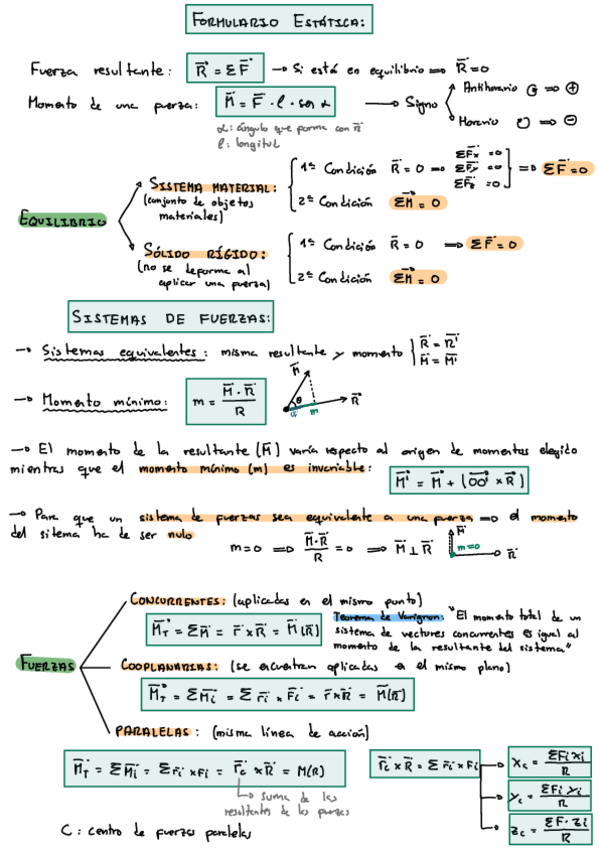 FORMULARIO ESTÁTICA:
Fuerza resultante: R⃗ = ΣF⃗ → Si está en equilibrio ⇒ R⃗ = 0
Momento de una fuerza: M⃗ = F⃗ · l · sen α → Signo
Antihorario ↺ ⇒ +
Horario ↻ ⇒ −
α: ángulo que forma con R⃗
l: longitud
EQUILIBRIO
SISTEMA MATERIAL:
(conjunto de objetos
materiales)
1ª Condición R⃗ = 0 ⇒ ΣFx = 0 ΣFy = 0 ΣFz = 0 ⇒ ΣF⃗ = 0
2ª Condición ΣM⃗ = 0
SÓLIDO RÍGIDO:
(no se deforma al
aplicar una fuerza)
1ª Condición R⃗ = 0 ⇒ ΣF⃗ = 0
2ª Condición ΣM⃗ = 0
SISTEMAS DE FUERZAS:
→ Sistemas equivalentes: misma resultante y momento { R⃗ = R⃗' M⃗ = M⃗'
→ Momento mínimo: m = M⃗ · R⃗ / R
M⃗ θ m R⃗
→ El momento de la resultante (M⃗) varía respecto al origen de momentos elegido
mientras que el momento mínimo (m) es invariable: M⃗' = M⃗ + (O⃗'O⃗ × R⃗)
→ Para que un sistema de fuerzas sea equivalente a una fuerza ⇒ el momento
del sitema ha de ser nulo
m = 0 ⇒ M⃗ · R⃗ / R = 0 ⇒ M⃗ ⊥ R⃗
M⃗ m=0 R⃗
FUERZAS
CONCURRENTES: (aplicadas en el mismo punto)
M⃗T = ΣM⃗ = r⃗ × R⃗ = M⃗(R⃗)
Teorema de Varignon: "El momento total de un
sistema de vectores concurrentes es igual al
momento de la resultante del sistema"
COOPLANARIAS: (se encuentran aplicadas en el mismo plano)
M⃗T = ΣM⃗i = Σ r⃗i × F⃗i = r⃗ × R⃗ = M⃗(R⃗)
PARALELAS: (misma línea de acción)
M⃗T = ΣM⃗i = Σ r⃗i × Fi = r⃗c × R⃗ = M(R)
suma de las
resultantes de las fuerzas
r⃗c × R⃗ = Σ r⃗i × Fi
xc = ΣFi xi / R
yc = ΣFi yi / R
zc = ΣF · zi / R
C: centro de fuerzas paralelas